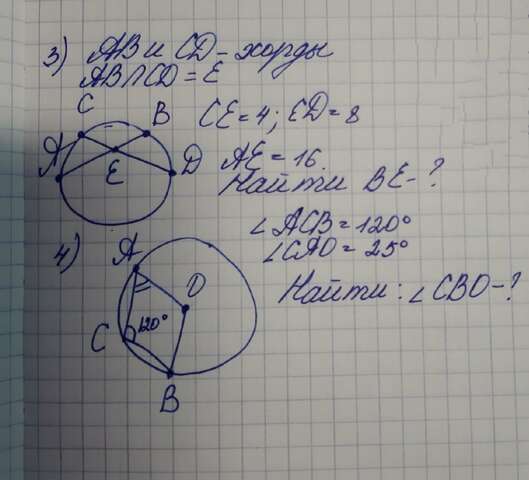 3) AB и CD - хорды
AB∩CD = E
C
B
CE = 4; ED = 8
A
E
D
AE = 16.
Найти BE - ?
∠ACB = 120°
∠CAO = 25°
4)
A
O
Найти: ∠CBO - ?
C
120°
B